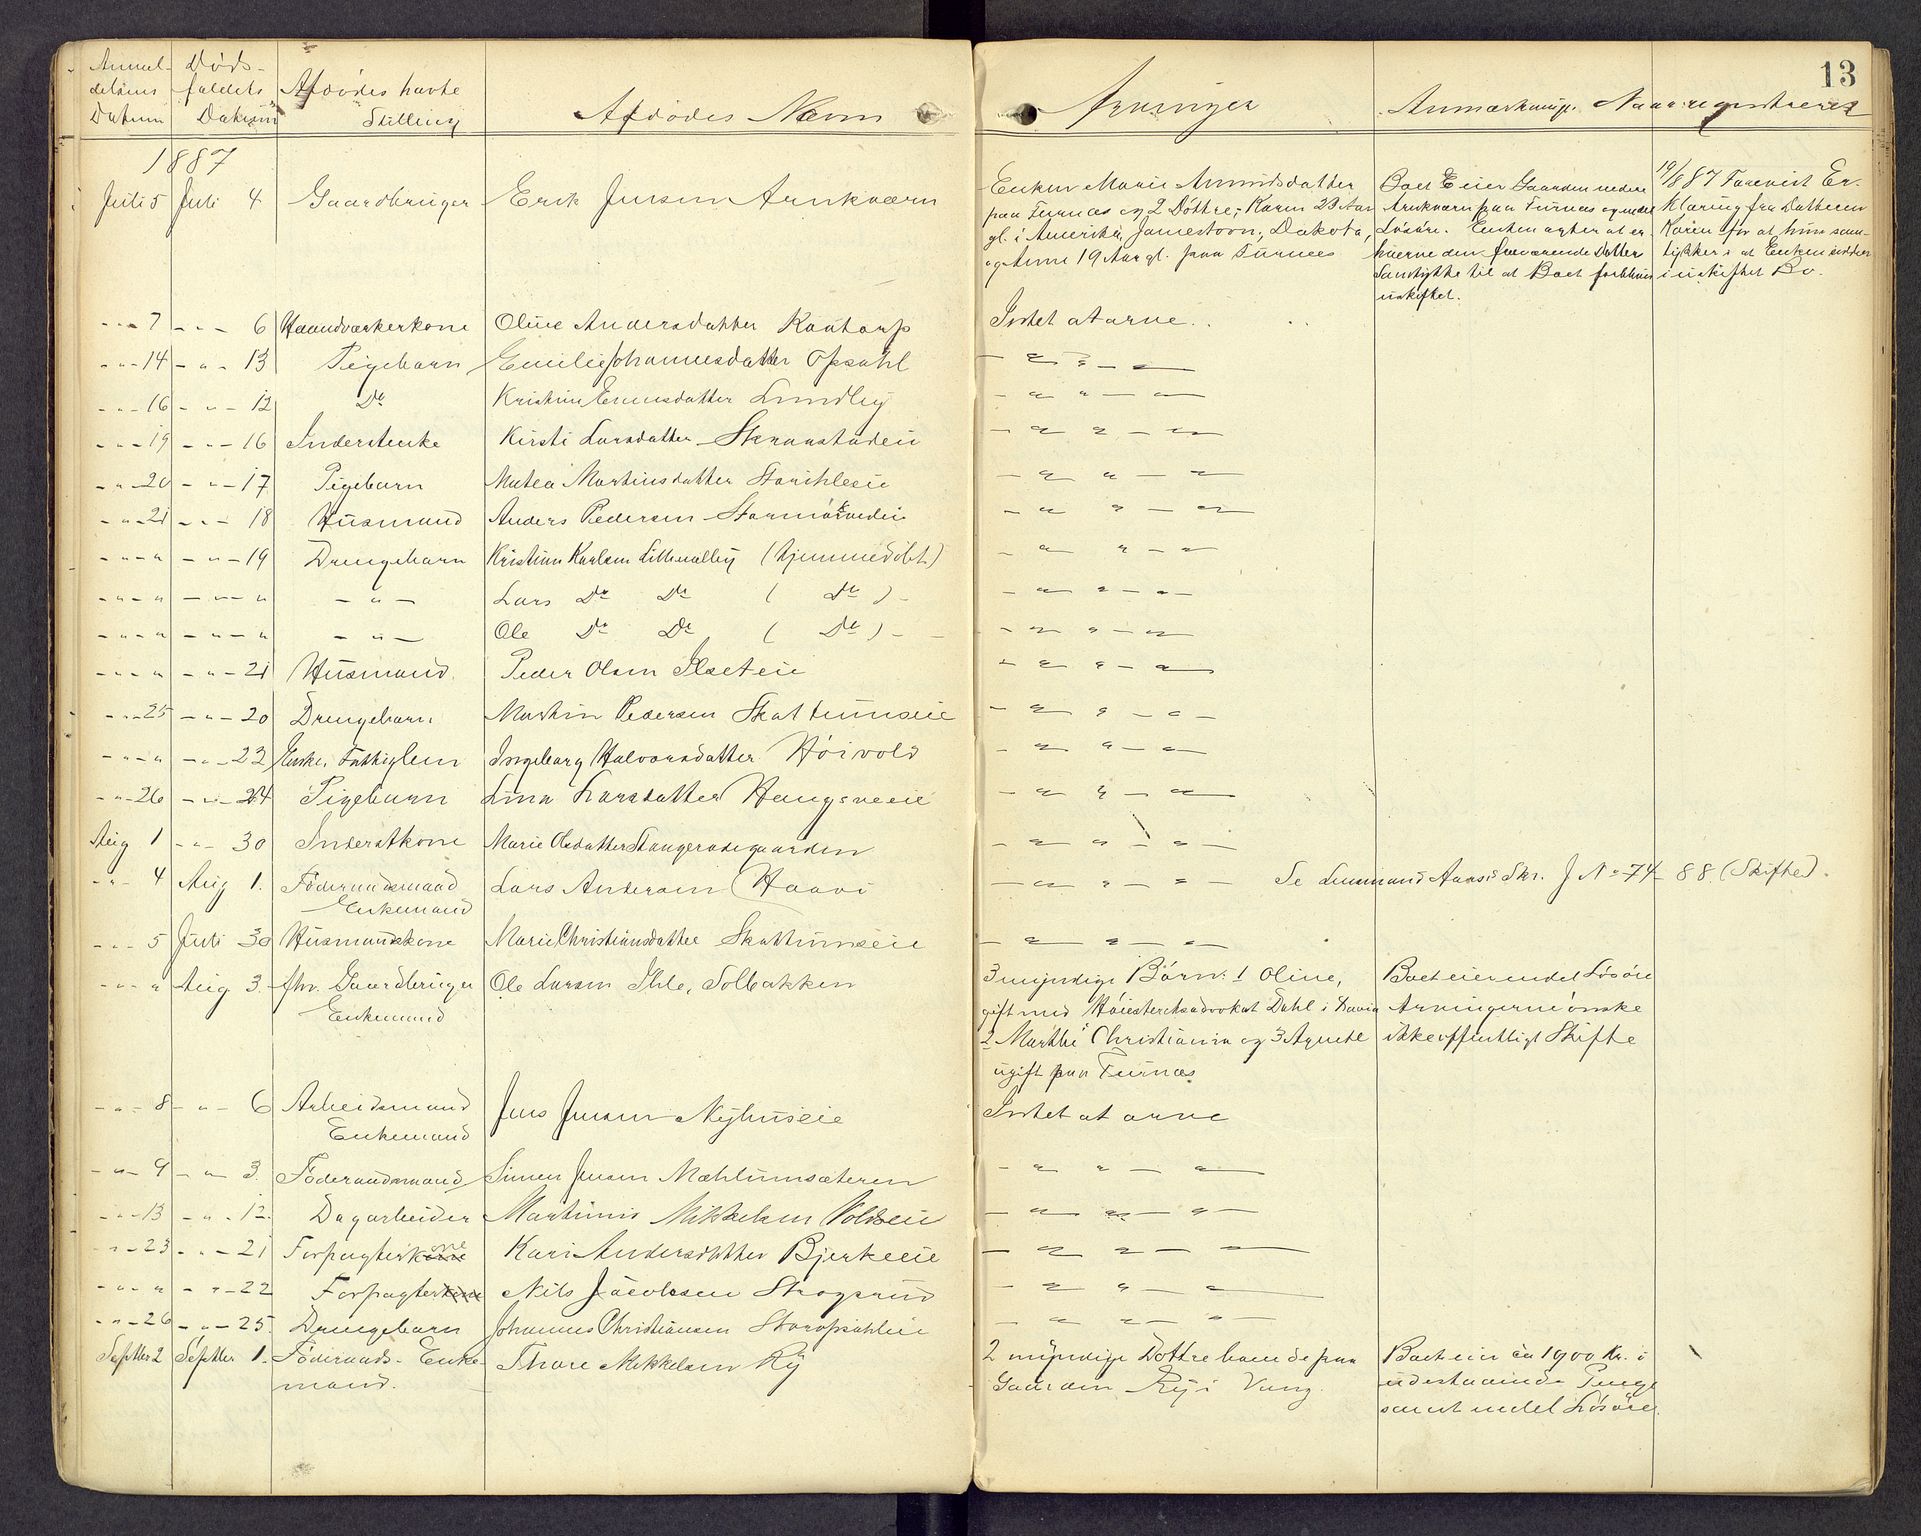 Anmel- Døds-
delsens faldets Afdødes havte
Datum Datum Stilling Afdødes Navn Arvinger Anmærkning. Naar registreret
13
1887
Juli 5 Juli 4 Gaardbruger Erik Jensen Arnkværn
Enken Marie Amundsdatter
paa Furnæs og 2 Døttre, Karen 23 Aar
gl. i Amerika, Jamestown, Dakota,
og Anne 19 Aar gl. paa Furnæs
Boet Eier Gaarden nedre
Arnkværn paa Furnæs og endel
Løsøre. Enken agter at er-
hverve den fraværende Datter
Samtykke til at Boet forbliver
uskiftet.
19/8 87 Forevist Er-
klæring fra Datteren
Karen for at hun sam-
tykker i at Enken sidder
i uskiftet Bo.
- " - 7 - " - 6 Haandværkerkone Oline Andersdatter Kaatorp Intet at arve.
- " - 14 - " - 13 Pigebarn Emilie Johannesdatter Opsahl - " " - " -
- " - 16 - " - 12 Do Kristine Evensdatter Lundby - " " - " -
- " - 19 - " - 16 Inderstenke Kirsti Larsdatter Skraastadeie - " " - " -
- " - 20 - " - 17 Pigebarn Mutea Martinsdatter Storihleeie - " " - " -
- " - 21 - " - 18 Husmand Anders Pedersen - " " - " -
- " - " - " - 19 Drengebarn Kristian Karlsen Lillevalley (hjemmedøbt) - " " - " -
- " - " - " - " - " - Lars Do Do ( Do ) - - " " - " -
- " - " - " - " - " - Ole Do Do ( Do ) - - " " - " -
- " - " - " - 21 Husmand. Peder Olsen Ilseteie - " " - " -
- " - 25 - " - 20 Drengebarn Martin Pedersen Skattumseie - " " - " -
- " - " - " - 23 Enke, Fattiglem Ingeborg Halvorsdatter Høivold - " " - " -
- " - 26 - " - 24 Pigebarn Lina Larsdatter Haugsveeie - " " - " -
Aug 1 - " - 30 Inderstkone Marie Olsdatter Stangerudegaarden - " " - " -
- " - 4 Aug 1. Föderaadsmand Lars Andersen Haave - " " - " - Se Lensmand Aas's Skr. J No 74 - 88. (Skifte).
Enkemand
- " - 5 Juli 30 Husmandskone Marie Christiansdatter Skattumseie - " " - " -
- " - " Aug 3. fhv. Gaardbruger Ole Larsen Ihle, Solbakken
Enkemand
3 myndige Børn: 1 Oline,
gift med Høiesteretsadvokat Dahl i
2 Marthe Christiania og 3 Agnete
ugift paa Furnæs
Boet eier endel Løsøre
Arvingerne ønske
ikke offentligt Skifte
- " - 8 - " - 6 Arbeidsmand Jens Jensen Nyhuseie Intet at arve
Enkemand
- " - 9 - " - 3. Föderaadsmand Simen Jensen Mæhlumsæteren - " " - " -
- " - 13 - " - 12. Dagarbeider Martinus Mikkelsen Voldseie - " " - " -
- " - 23 - " - 21 Forpagterkone Kari Andersdatter Bjerkeeie - " " - " -
- " - " - " - 22 Forpagter Nils Jacobsen Skogsrud - " " - " -
- " - 26 - " - 25. Drengebarn Johannes Christiansen Storopsahleie - " " - " -
Septbr 2 Septbr 1. Föderaads- Enke- Thore Mikkelsen Ry
mand.
2 myndige Døttre boende paa
Gaarden Ry i Vang.
Boet eier ca 1900 Kr. i
udestaaende Penge
samt endel Løsøre.